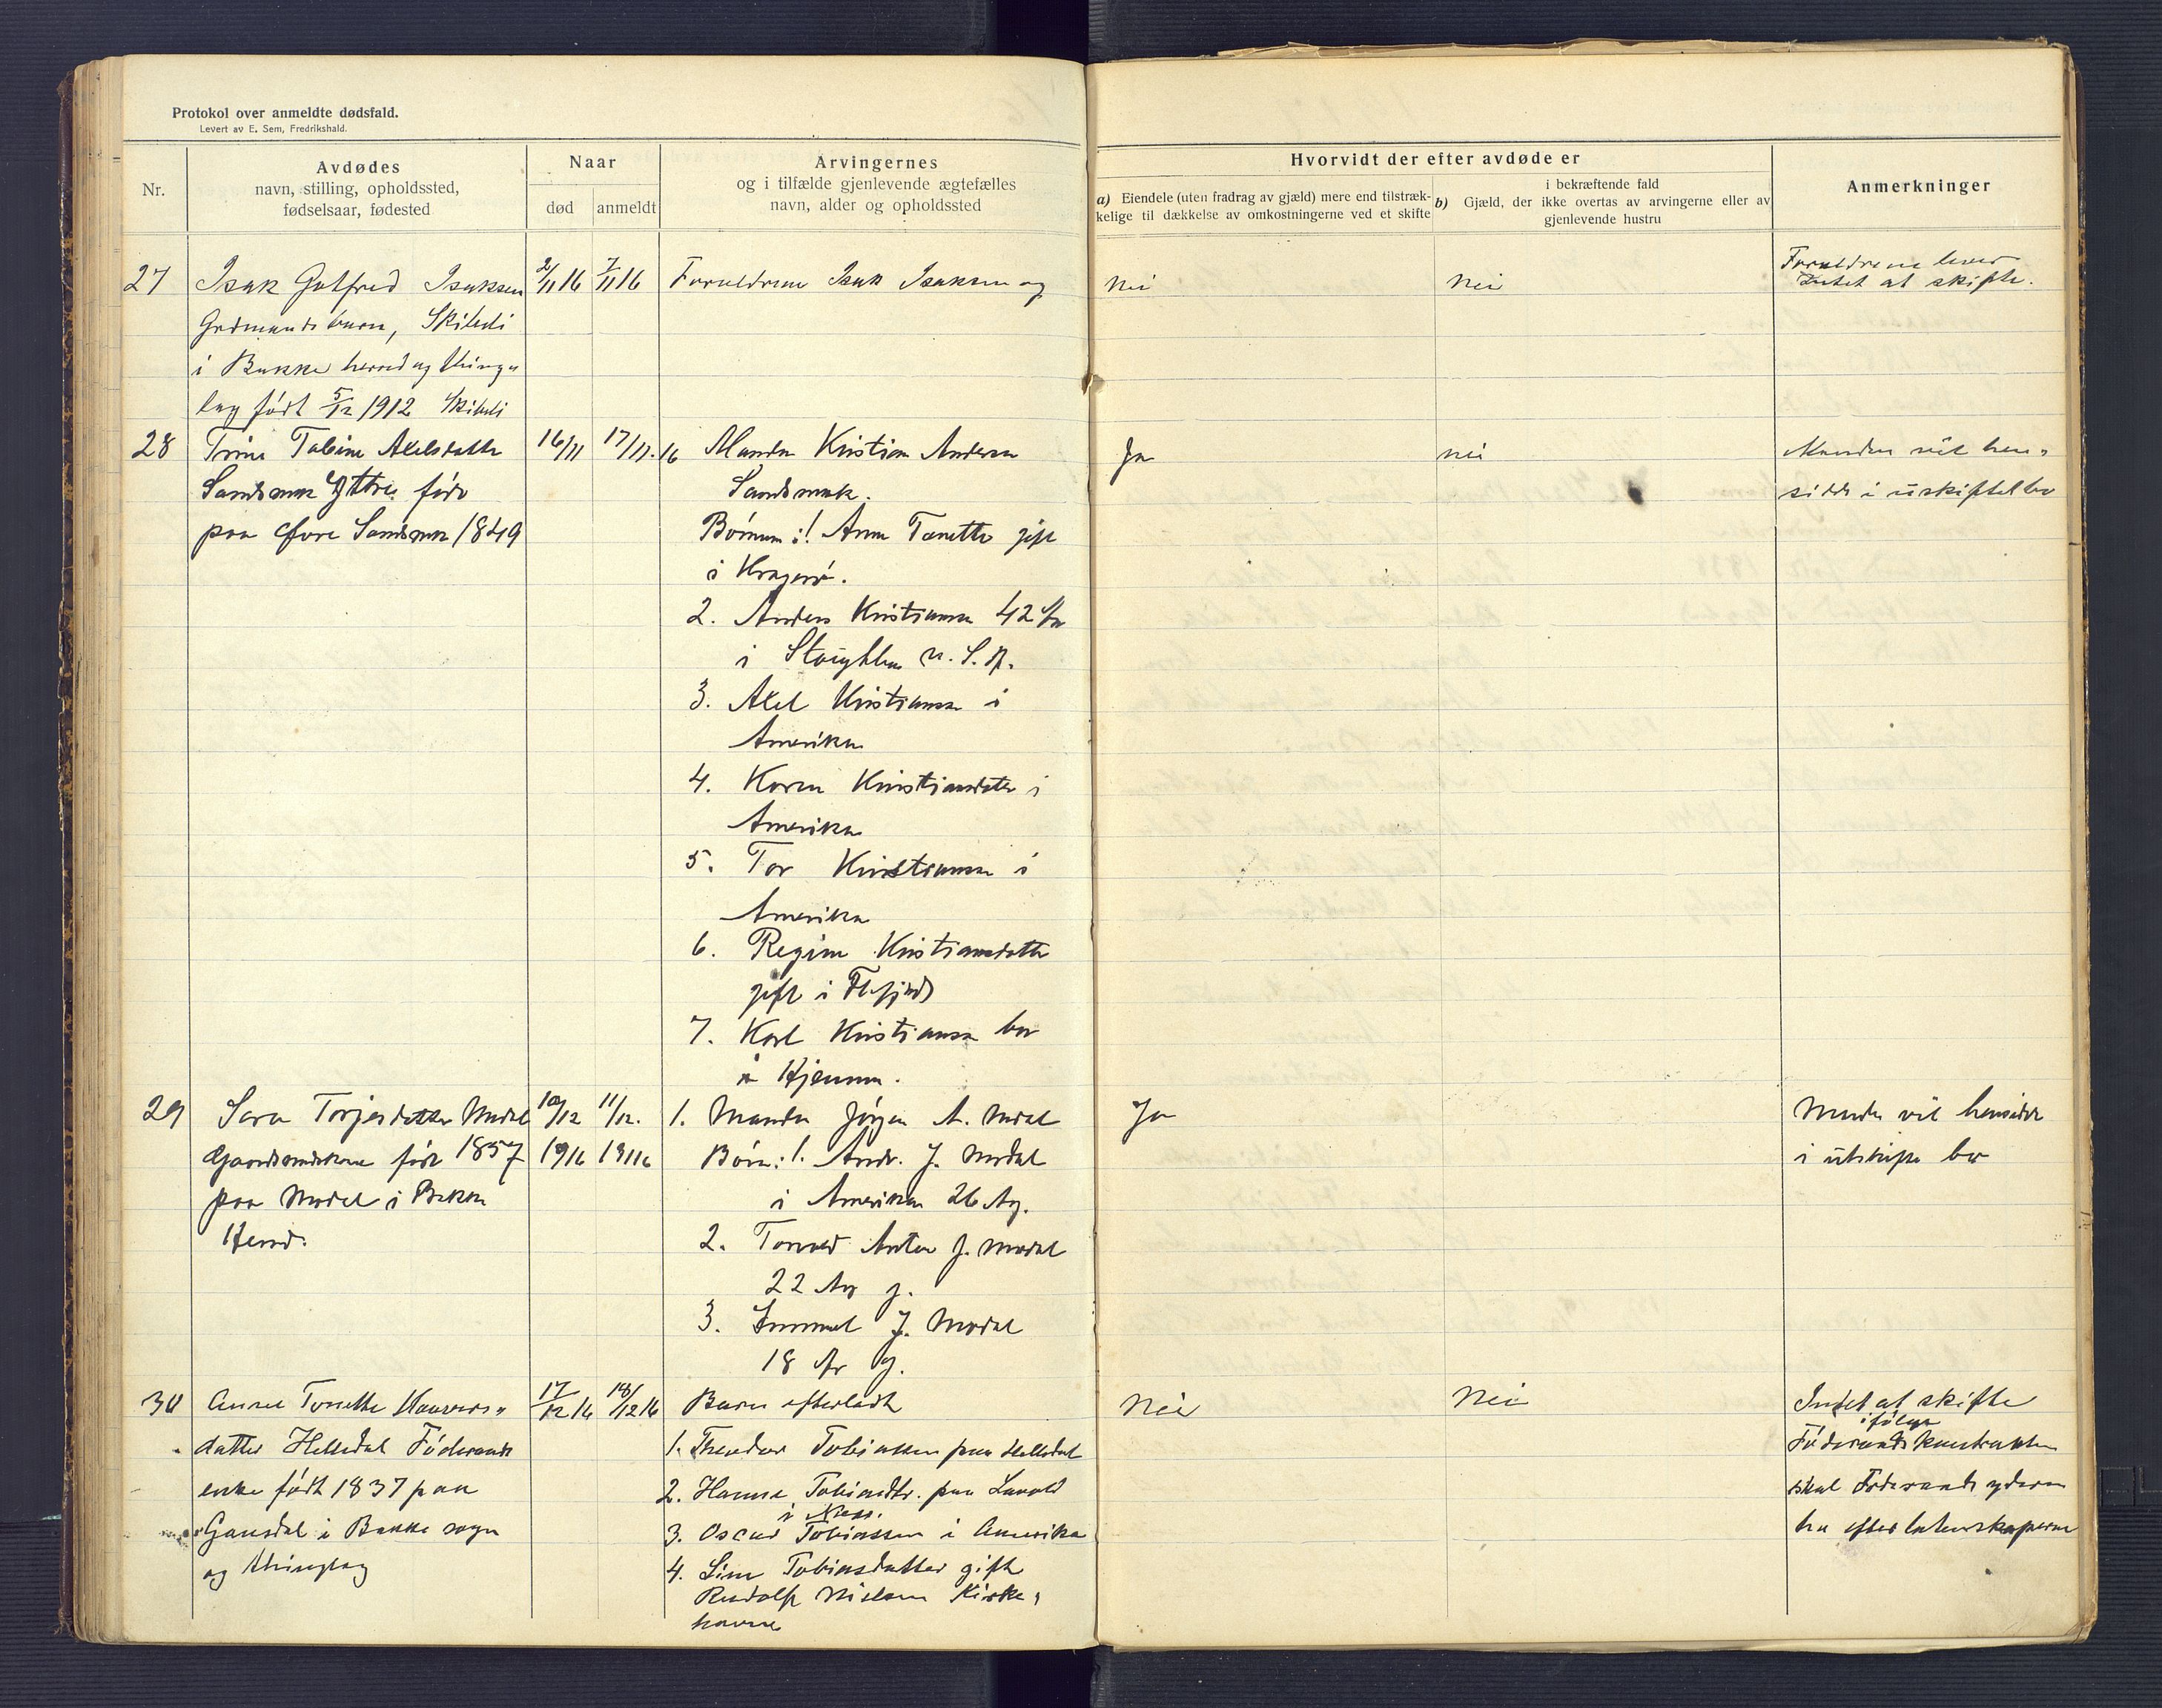 Protokol over anmeldte dødsfald.
Levert av E. Sem, Fredrikshald.
Nr.
Avdødes
navn, stilling, opholdssted,
fødselsaar, fødested
Naar
død
anmeldt
Arvingernes
og i tilfælde gjenlevende ægtefælles
navn, alder og opholdssted
Hvorvidt der efter avdøde er
a) Eiendele (uten fradrag av gjæld) mere end tilstræk-
kelige til dækkelse av omkostningerne ved et skifte
i bekræftende fald
b) Gjæld, der ikke overtas av arvingerne eller av
gjenlevende hustru
Anmerkninger
27
Isak Gotfred Isaksen
Grdmandsbarn, Skibeli
i Bakke herred og thing-
lag født 5/12 1912 Skibeli
2/11 16
7/11 16
Forældrene Isak Isaksen og
Nei
Nei
Forældrene lever
Intet at skifte.
28
Trine Tobine Akselsdatter
Sandsmrk Yttre, født
paa Øvre Sandsmrk 1849
16/11
17/11. 16
Manden Kristian Andersen
Sandsmrk.
Børnene: 1. Anne Tonette gift
i Kragerø.
2. Anders Kristiansen 42 Aar
i Stoughton U. S. A.
3. Axel Kristiansen i
Amerika
4. Karen Kristiansdatter i
Amerika
5. Tor Kristiansen i
Amerika
6. Regine Kristiansdatter
gift i Flekkefjord
7. Karl Kristiansen bor
i Hjemmet.
Ja
nei
Manden vil hen-
sidde i uskiftet bo
29
Sara Torjesdatter Modal
Gaardmandskone født 1857
paa Modal i Bakke
Herred.
10/12
1916
11/12.
1916
1. Manden Jørgen A. Modal
Børn: 1. Andr. J. Modal
i Amerika 26 Ar g.
2. Torvald Anton J. Modal
22 Ar g.
3. Immanuel J. Modal
18 Ar g.
Ja
Manden vil hensidde
i uskifte bo
30
Anne Tonette Haavors-
datter Helledal Føderaads
enke født 1837 paa
Gausdal i Bakke sogn
og thinglag
17/12 16
18/12 16
Barn efterladt
1. Theodor Tobiassen paa Helledal
2. Hanne Tobiasdtr. paa Lavold
i Næs.
3. Oscar Tobiassen i Amerika
4. Line Tobiasdatter gift
Rudolf Nielsen Kirke-
havne
Nei
Nei
Intet at skifte
ifølge
Føderaadskontrakten
skal Føderaads yderen
ha efterladenskaperne